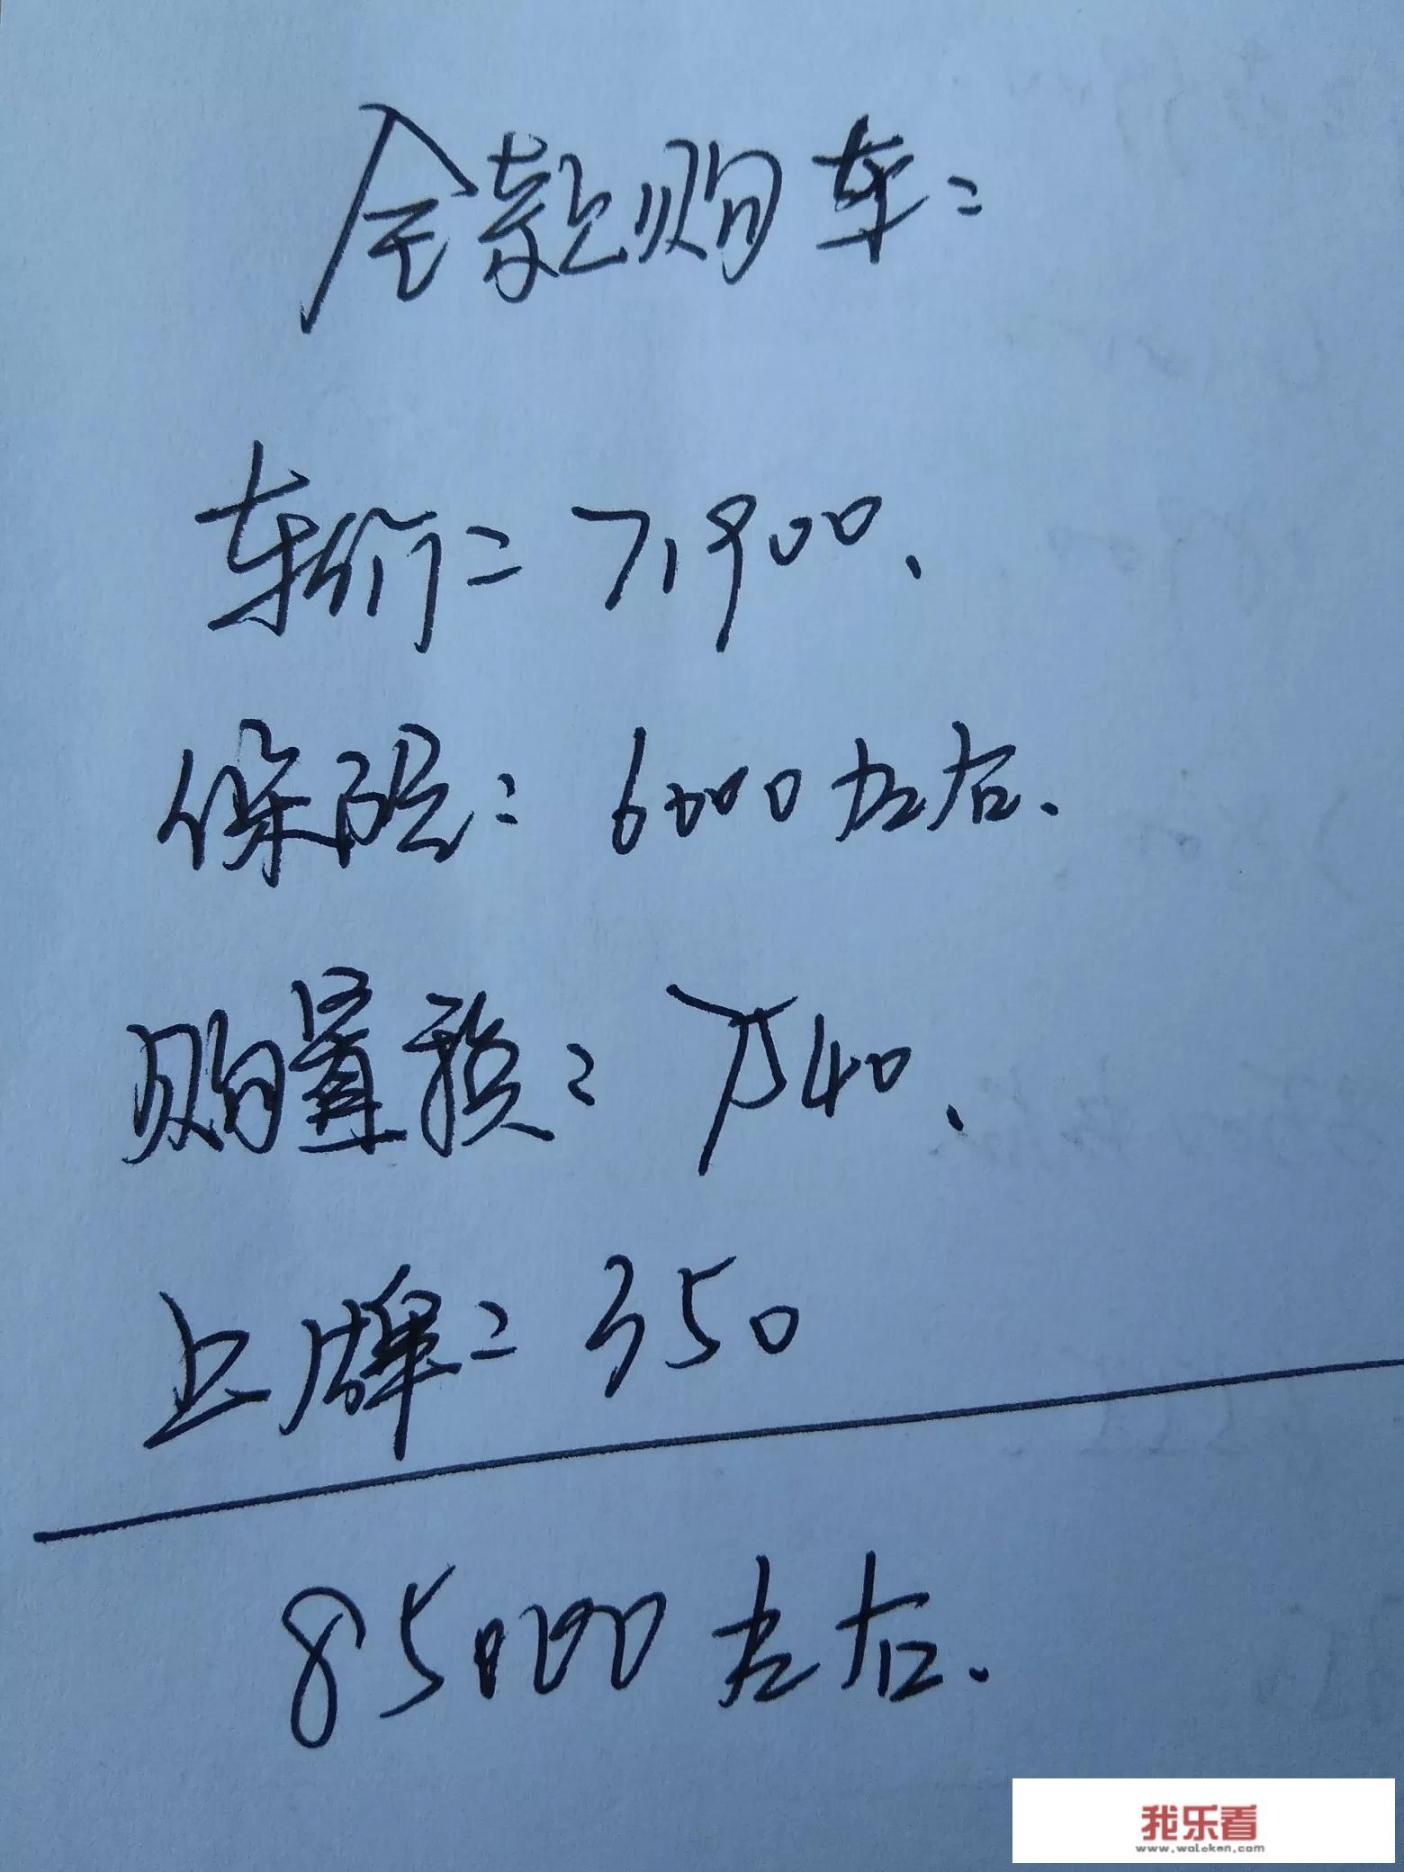 全款购车：
车价：71900、
保险：6000左右、
购置税：7540、
上牌：350
85000左右.
我乐看
www.woleken.com